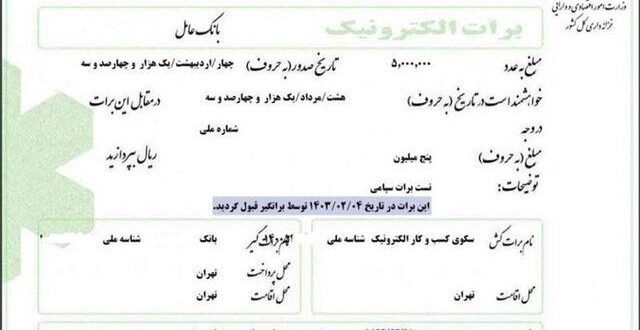 وزارت امور اقتصادی و دارایی
خزانه داری کل کشور
برات الکترونیک
بانک عامل
مبلغ به عدد ۵,۰۰۰,۰۰۰ تاریخ صدور (به حروف) چهار/اردیبهشت/یک هزار و چهارصد و سه
خواهشمند است در تاریخ (به حروف) هشت/مرداد/یک هزار و چهارصد و سه در مقابل این برات
در وجه شماره ملی
مبلغ (به حروف) پنج میلیون ریال بپردازید
توضیحات: تست برات سپامی
این برات در تاریخ ۱۴۰۳/۰۲/۰۴ توسط براتگیر قبول گردید.
نام برات کش سکوی کسب و کار الکترونیک شناسه ملی
محل اقامت تهران
برات گیر بانک شناسه ملی
محل پرداخت تهران
محل اقامت تهران